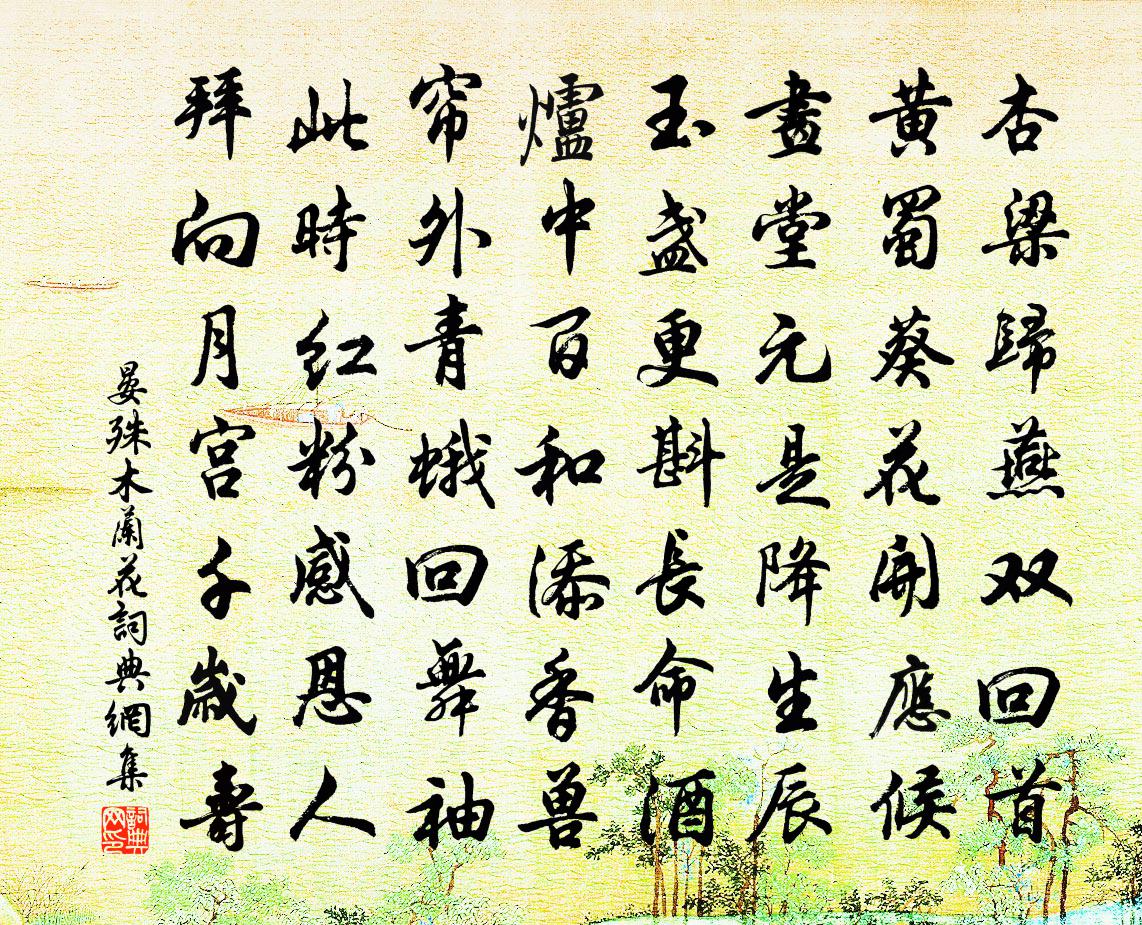 杏梁歸燕双回首
黄蜀葵花開應候
畫堂元是降生辰
玉盏更斟長命酒
爐中百和添香兽
帘外青蛾回舞袖
此時红粉感恩人
拜向月宫千歲壽
晏殊木蘭花詞典網集
詞典网印